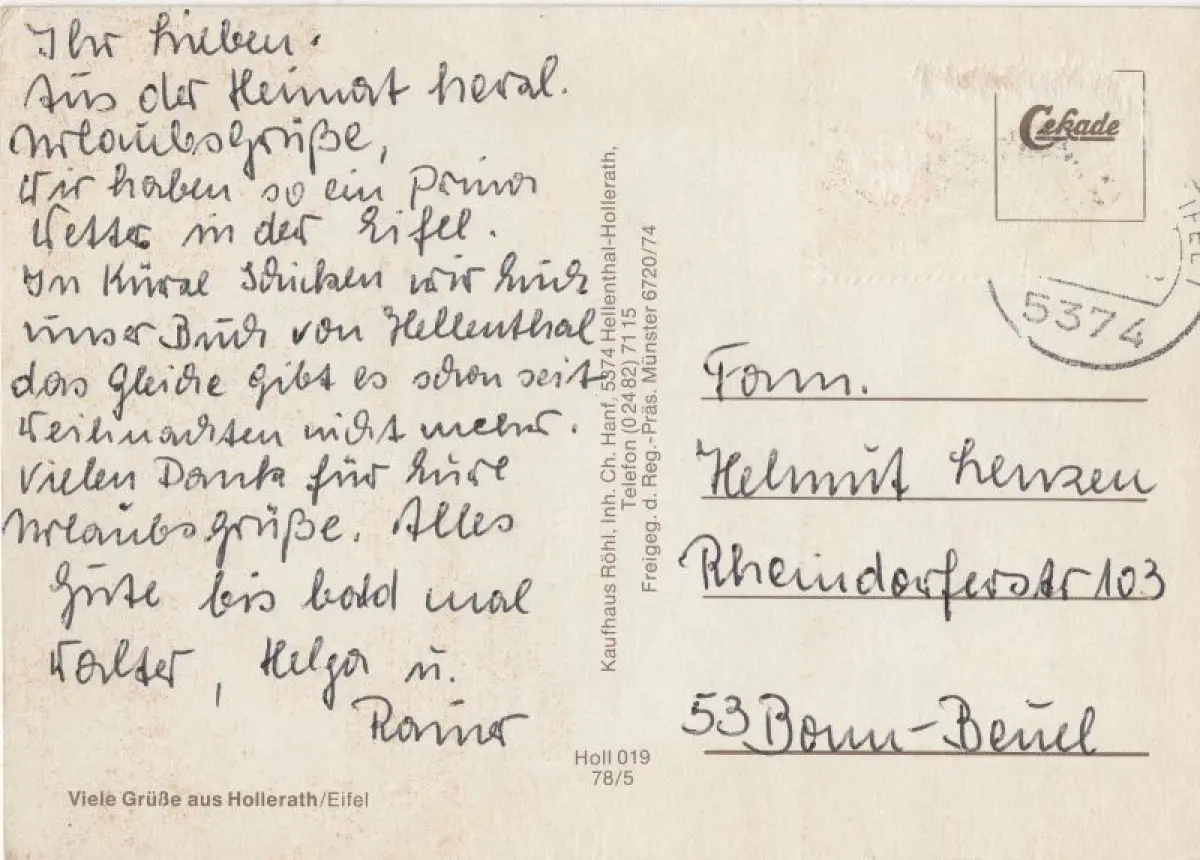 Ihr Lieben.
Aus der Heimat herzl.
Urlaubsgrüße,
Wir haben so ein Prima
Wetter in der Eifel.
In Kürze schicken wir Euch
unser Buch von Hellenthal
das Gleiche gibt es schon seit
Weihnachten nicht mehr.
Vielen Dank für Eure
Urlaubsgrüße. Alles
Gute bis bald mal
Walter, Helga u.
Rainer
Viele Grüße aus Hollerath/Eifel
Kaufhaus Röhl, Inh. Ch. Hanf, 5374 Hellenthal-Hollerath,
Telefon (0 24 82) 71 15
Freigeg. d. Reg.-Präs. Münster 6720/74
Holl 019
78/5
Cekade
IFEL
5374
Fam.
Helmut Lenzen
Rheindorferstr 103
53 Bonn-Beuel